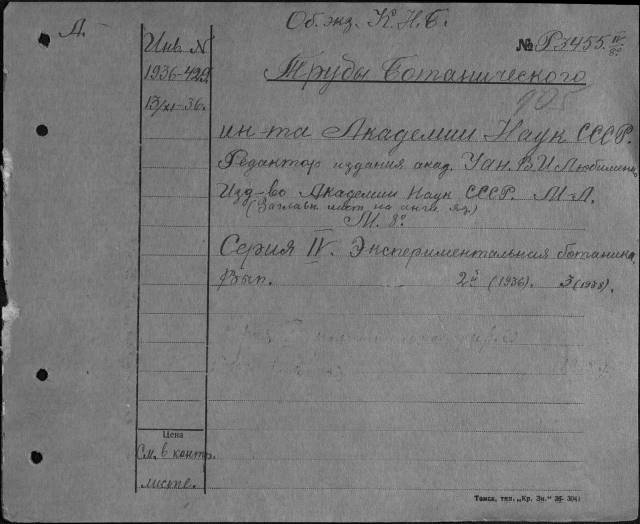 Об. экз. К.Н.Б.
А.
Инв N
№ Р3455 IV/8°
1936-429.
Труды Ботанического
13/XI-36.
905
ин-та Академии Наук СССР.
Редактор издания акад. В.И Любименк
Изд-во Академии Наук СССР. М-Л.
(Заглавн. лист на англ. яз.)
М. 8°
Серия IV. Экспериментальная ботаника,
Вып. 2й (1936). 3 (1938).
Цена
См. в контр.
листке.
Томск, тип. „Кр. Зн."